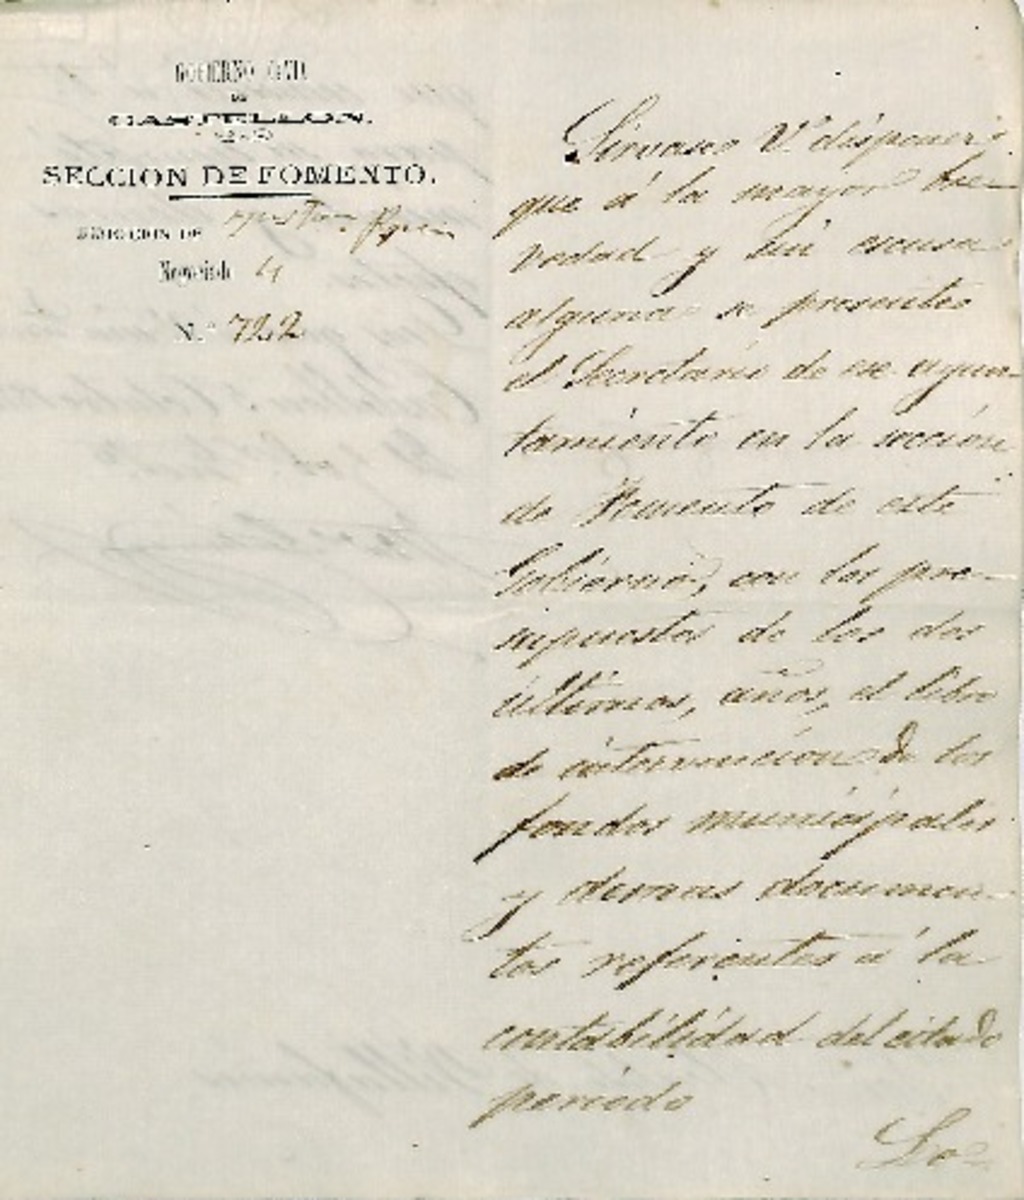 GOBIERNO CIVIL
DE
CASTELLON.
SECCION DE FOMENTO.
DIRECCION DE
Negociado 4
N.º 722
Sirvase Vd disponer
que á la mayor bre-
vedad y sin escusa
alguna se presente
el Secretario de ese ayun-
tamiento en la sección
de Fomento de este
Gobierno, con los pre-
supuestos de los dos
últimos, años, el libro
de intervencion de los
fondos municipales
y demas documen-
tos referentes á la
contabilidad del citado
periodo
Lo